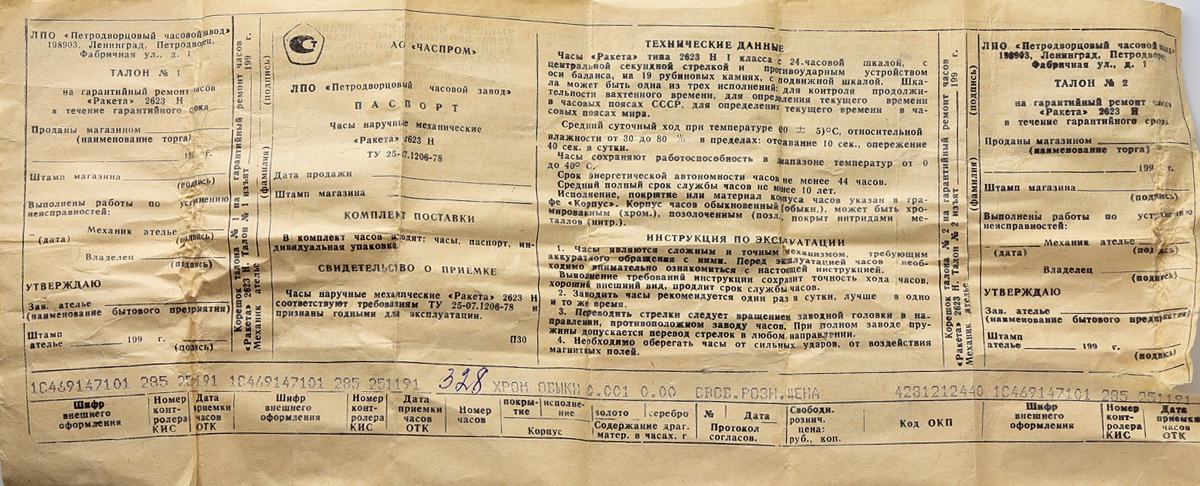 ЛПО «Петродворцовый часовой завод»
198903, Ленинград, Петродворец,
Фабричная ул., д. 1
ТАЛОН № 1
на гарантийный ремонт часов
«Ракета» 2623 Н
в течение гарантийного срока
Проданы магазином
(наименование торга)
199 г.
Штамп магазина
(подпись)
Выполнены работы по устранению
неисправностей:
Механик ателье
(дата) (подпись)
Владелец
(подпись)
УТВЕРЖДАЮ
Зав. ателье
(наименование бытового предприятия)
Штамп
ателье 199 г.
(подпись)
Корешок талона № 1 на гарантийный ремонт часов
«Ракета» 2623 Н. Талон № 1 изъят 199 г.
Механик ателье (фамилия) (подпись)
АО «ЧАСПРОМ»
ЛПО «Петродворцовый часовой завод»
ПАСПОРТ
Часы наручные механические
«Ракета» 2623 Н
ТУ 25-07.1206-78
Дата продажи
Штамп магазина
КОМПЛЕКТ ПОСТАВКИ
В комплект часов входят: часы, паспорт, ин-
дивидуальная упаковка
СВИДЕТЕЛЬСТВО О ПРИЕМКЕ
Часы наручные механические «Ракета» 2623 Н
соответствуют требованиям ТУ 25-07.1206-78 и
признаны годными для эксплуатации.
П30
ТЕХНИЧЕСКИЕ ДАННЫЕ
Часы «Ракета» типа 2623 Н I класса с 24-часовой шкалой, с
центральной секундной стрелкой и противоударным устройством
оси баланса, на 19 рубиновых камнях, с подвижной шкалой. Шка-
ла может быть одна из трех исполнений: для контроля продолжи-
тельности вахтенного времени, для определения текущего времени
в часовых поясах СССР, для определения текущего времени в ча-
совых поясах мира.
Средний суточный ход при температуре (20 ± 5)°С, относительной
влажности от 30 до 80 % в пределах: отставание 10 сек., опережение
40 сек. в сутки.
Часы сохраняют работоспособность в диапазоне температур от 0
до 40° С.
Срок энергетической автономности часов не менее 44 часов.
Средний полный срок службы часов не менее 10 лет.
Исполнение, покрытие или материал корпуса часов указан в гра-
фе «Корпус». Корпус часов обыкновенный (обыкн.), может быть хро-
мированным (хром.), позолоченным (позл.), покрыт нитридами ме-
таллов (нитр.).
ИНСТРУКЦИЯ ПО ЭКСПЛУАТАЦИИ
1. Часы являются сложным и точным механизмом, требующим
аккуратного обращения с ними. Перед эксплуатацией часов необ-
ходимо внимательно ознакомиться с настоящей инструкцией.
Выполнение требований инструкции сохранит точность хода часов,
хороший внешний вид, продлит срок службы часов.
2. Заводить часы рекомендуется один раз в сутки, лучше в одно
и то же время.
3. Переводить стрелки следует вращением заводной головки в на-
правлении, противоположном заводу часов. При полном заводе пру-
жины допускается перевод стрелок в любом направлении.
4. Необходимо оберегать часы от сильных ударов, от воздействия
магнитных полей.
Корешок талона № 2 на гарантийный ремонт часов
«Ракета» 2623 Н. Талон № 2 изъят 199 г.
Механик ателье (фамилия) (подпись)
ЛПО «Петродворцовый часовой завод»
198903, Ленинград, Петродворец,
Фабричная ул., д. 1
ТАЛОН № 2
на гарантийный ремонт часов
«Ракета» 2623 Н
в течение гарантийного срока
Проданы магазином
(наименование торга)
199 г.
Штамп магазина
(подпись)
Выполнены работы по устранению
неисправностей:
Механик ателье
(дата) (подпись)
Владелец
(подпись)
УТВЕРЖДАЮ
Зав. ателье
(наименование бытового предприятия)
Штамп
ателье 199 г.
(подпись)
1С469147101 285 251191 1С469147101 285 251191 328 ХРОМ ОБЫКН 0.001 0.00 СВОБ.РОЗН.ЦЕНА 4281212440 1С469147101 285 251191
Шифр внешнего оформления
Номер контролера КИС
Дата приемки часов ОТК
Шифр внешнего оформления
Номер контролера КИС
Дата приемки часов ОТК
Номер часов
покрытие исполнение
Корпус
золото серебро
Содержание драг. матер. в часах, г
№ Дата
Протокол согласов.
Свободн. рознич. цена: руб., коп.
Код ОКП
Шифр внешнего оформления
Номер контролера КИС
Дата приемки часов ОТК